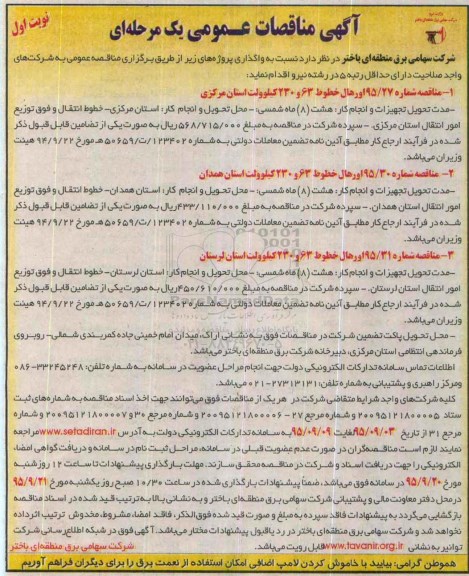 نوبت اول
آگهی مناقصات عمومی یک مرحله‌ای
شرکت سهامی برق منطقه‌ای باختر در نظر دارد نسبت به واگذاری پروژه‌های زیر از طریق برگزاری مناقصه عمومی به شرکت‌های
واجد صلاحیت دارای حداقل رتبه ۵ در رشته نیرو اقدام نماید:
۱- مناقصه شماره ۹۵/۲۷ اورهال خطوط ۶۳ و ۲۳۰ کیلوولت استان مرکزی
-مدت تحویل تجهیزات و انجام کار: هشت (۸) ماه شمسی؛ - محل تحویل و انجام کار: استان مرکزی- خطوط انتقال و فوق توزیع
امور انتقال استان مرکزی. - سپرده شرکت در مناقصه به مبلغ ۵۶۸/۷۱۵/۰۰۰ ریال به صورت یکی از تضامین قابل قبول ذکر
شده در فرآیند ارجاع کار مطابق آئین نامه تضمین معاملات دولتی به شماره ۱۲۳۴۰۲/ت۵۰۶۵۹هـ مورخ ۹۴/۹/۲۲ هیئت
وزیران می‌باشد.
۲- مناقصه شماره ۹۵/۳۰ اورهال خطوط ۶۳ و ۲۳۰ کیلوولت استان همدان
-مدت تحویل تجهیزات و انجام کار: هشت (۸) ماه شمسی؛ - محل تحویل و انجام کار: استان همدان- خطوط انتقال و فوق توزیع
امور انتقال استان همدان. - سپرده شرکت در مناقصه به مبلغ ۴۳۳/۱۱۰/۰۰۰ ریال به صورت یکی از تضامین قابل قبول ذکر
شده در فرآیند ارجاع کار مطابق آئین نامه تضمین معاملات دولتی به شماره ۱۲۳۴۰۲/ت۵۰۶۵۹هـ مورخ ۹۴/۹/۲۲ هیئت
وزیران می‌باشد.
۳- مناقصه شماره ۹۵/۳۱ اورهال خطوط ۶۳ و ۲۳۰ کیلوولت استان لرستان
-مدت تحویل تجهیزات و انجام کار: هشت (۸) ماه شمسی؛ - محل تحویل و انجام کار: استان لرستان- خطوط انتقال و فوق توزیع
امور انتقال استان لرستان. - سپرده شرکت در مناقصه به مبلغ ۴۵۰/۶۱۰/۰۰۰ ریال به صورت یکی از تضامین قابل قبول ذکر
شده در فرآیند ارجاع کار مطابق آئین نامه تضمین معاملات دولتی به شماره ۱۲۳۴۰۲/ت۵۰۶۵۹هـ مورخ ۹۴/۹/۲۲ هیئت
وزیران می‌باشد.
- محل تحویل پاکت تضمین شرکت در مناقصات فوق به نشانی اراک، میدان امام خمینی جاده کمربندی شمالی- روبروی
فرماندهی انتظامی استان مرکزی، دبیرخانه شرکت برق منطقه‌ای باختر می‌باشد.
اطلاعات تماس سامانه تدارکات الکترونیکی دولت جهت انجام مراحل عضویت در سامانه به شماره تلفن: ۳۳۲۴۵۲۴۸-۰۸۶
ومرکز راهبری و پشتیبانی به شماره تلفن: ۲۷۳۱۳۱۳۱-۰۲۱ می‌باشد.
کلیه شرکت‌های واجد شرایط متقاضی شرکت در هریک از مناقصات فوق می‌توانند جهت اخذ اسناد مناقصه به شماره‌های ثبت
ستاد ۲۰۰۹۵۱۲۱۸۰۰۰۰۰۵ و شماره مرجع ۲۷ - ۲۰۰۹۵۱۲۱۸۰۰۰۰۰۶ و شماره مرجع ۳۰ و ۲۰۰۹۵۱۲۱۸۰۰۰۰۰۷ و شماره
مرجع ۳۱ از تاریخ ۹۵/۰۹/۰۳ لغایت ۹۵/۰۹/۰۹ به سامانه تدارکات الکترونیکی دولت به آدرس www.setadiran.ir مراجعه
نمایند. لازم است مناقصه‌گران در صورت عدم عضویت قبلی در سامانه، مراحل ثبت نام در سامانه و دریافت گواهی امضاء
الکترونیکی را جهت دریافت اسناد و شرکت در مناقصه محقق سازند. مهلت بارگذاری پیشنهادات تا ساعت ۱۲ روز شنبه
مورخ ۹۵/۹/۲۰ در سامانه فوق می‌باشد، ضمناً پیشنهادات بارگذاری شده در ساعت ۱۰/۳۰ صبح روز یکشنبه مورخ ۹۵/۹/۲۱
در محل دفتر معاونت مالی و پشتیبانی شرکت سهامی برق منطقه‌ای باختر و به نشانی بالا به ترتیب قید شده در اسناد مناقصه
بازگشایی می‌گردد به پیشنهادات فاقد سپرده به مبلغ و صورت قید شده فوق‌الذکر، فاقد امضاء، مشروط، مخدوش ترتیب اثر داده
نخواهد شد و شرکت سهامی برق منطقه‌ای باختر در رد یا قبول پیشنهادات مختار می‌باشد. آگهی فوق در شبکه اطلاع‌رسانی شرکت
توانیر به نشانی www.tavanir.org.ir قابل رویت می‌باشد.
شرکت سهامی برق منطقه‌ای باختر
هموطن گرامی: بیایید با خاموش کردن لامپ اضافی امکان استفاده از نعمت برق را برای دیگران فراهم آوریم